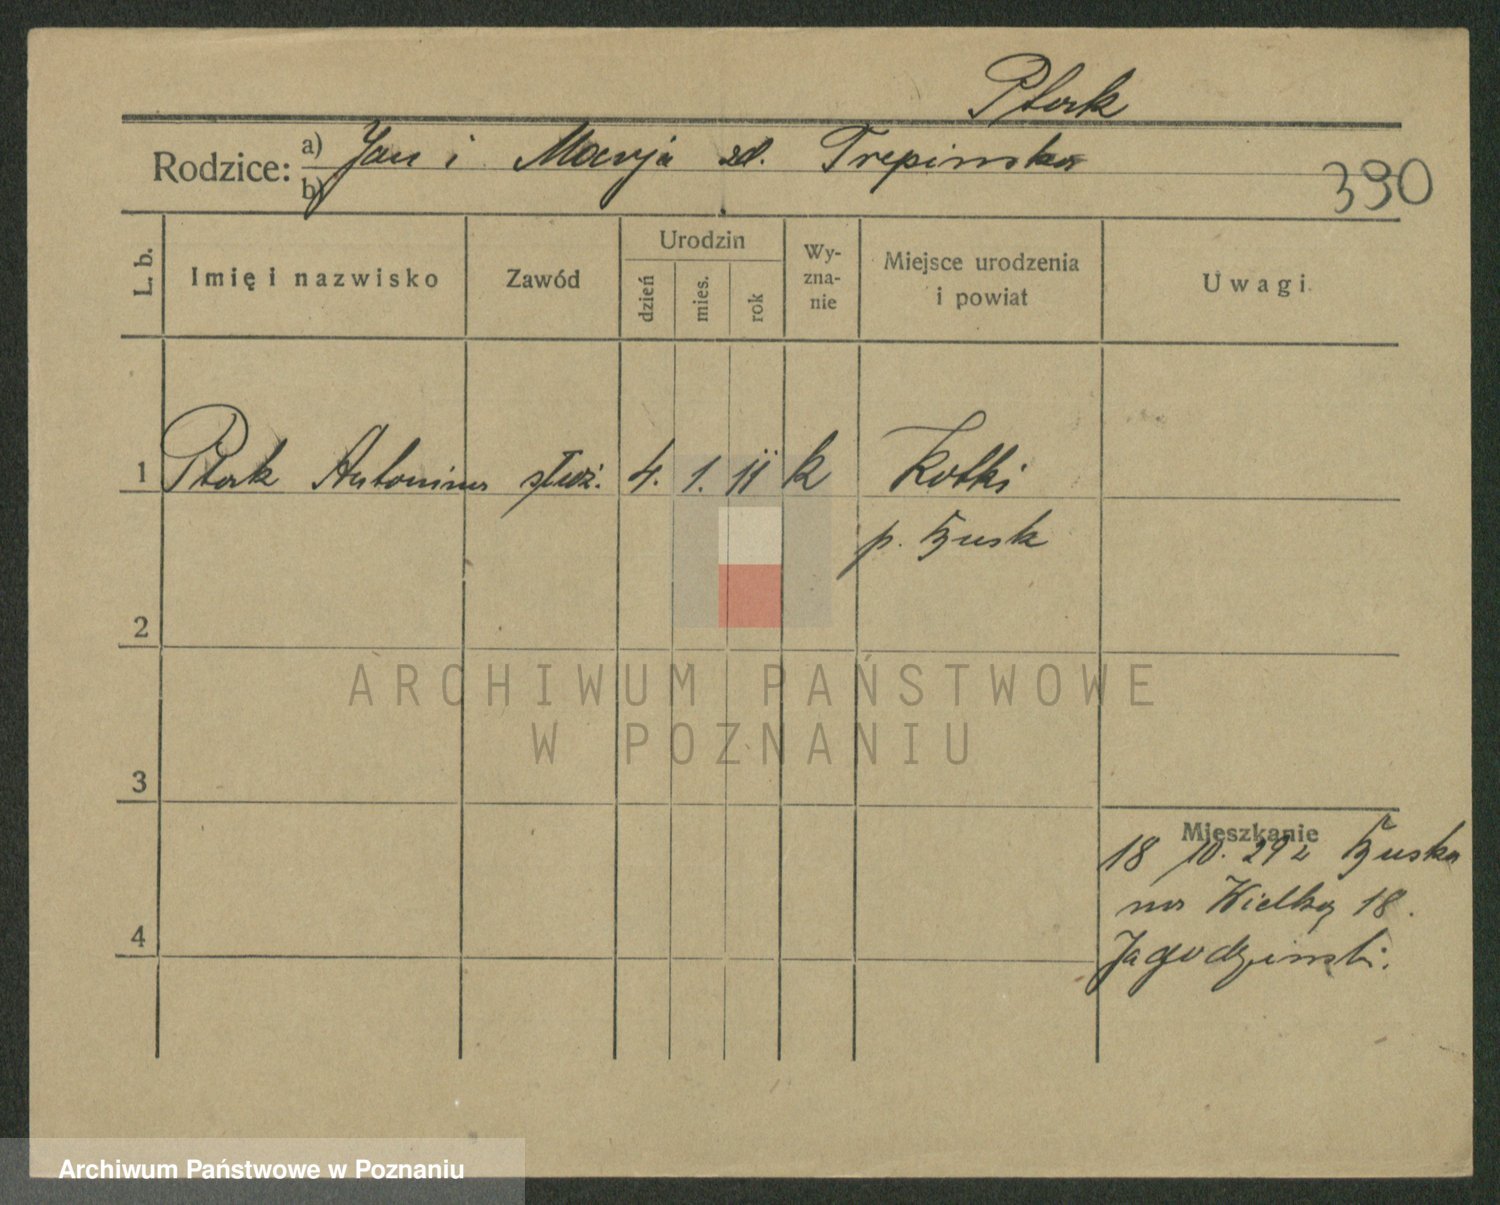 Ptak
Rodzice: a) Jan i Marja zd. Trepinska
b)
390
L. b.
Imię i nazwisko
Zawód
Urodzin
dzień
mies.
rok
Wy-
zna-
nie
Miejsce urodzenia
i powiat
Uwagi
1 Ptak Antonina służ. 4. 1. 11 k Kotki
p. Busk
2
3
4
Mieszkanie
18 10. 29 z Buska
na Wielką 18.
Jagodzinski.
ARCHIWUM PAŃSTWOWE
W POZNANIU
Archiwum Państwowe w Poznaniu